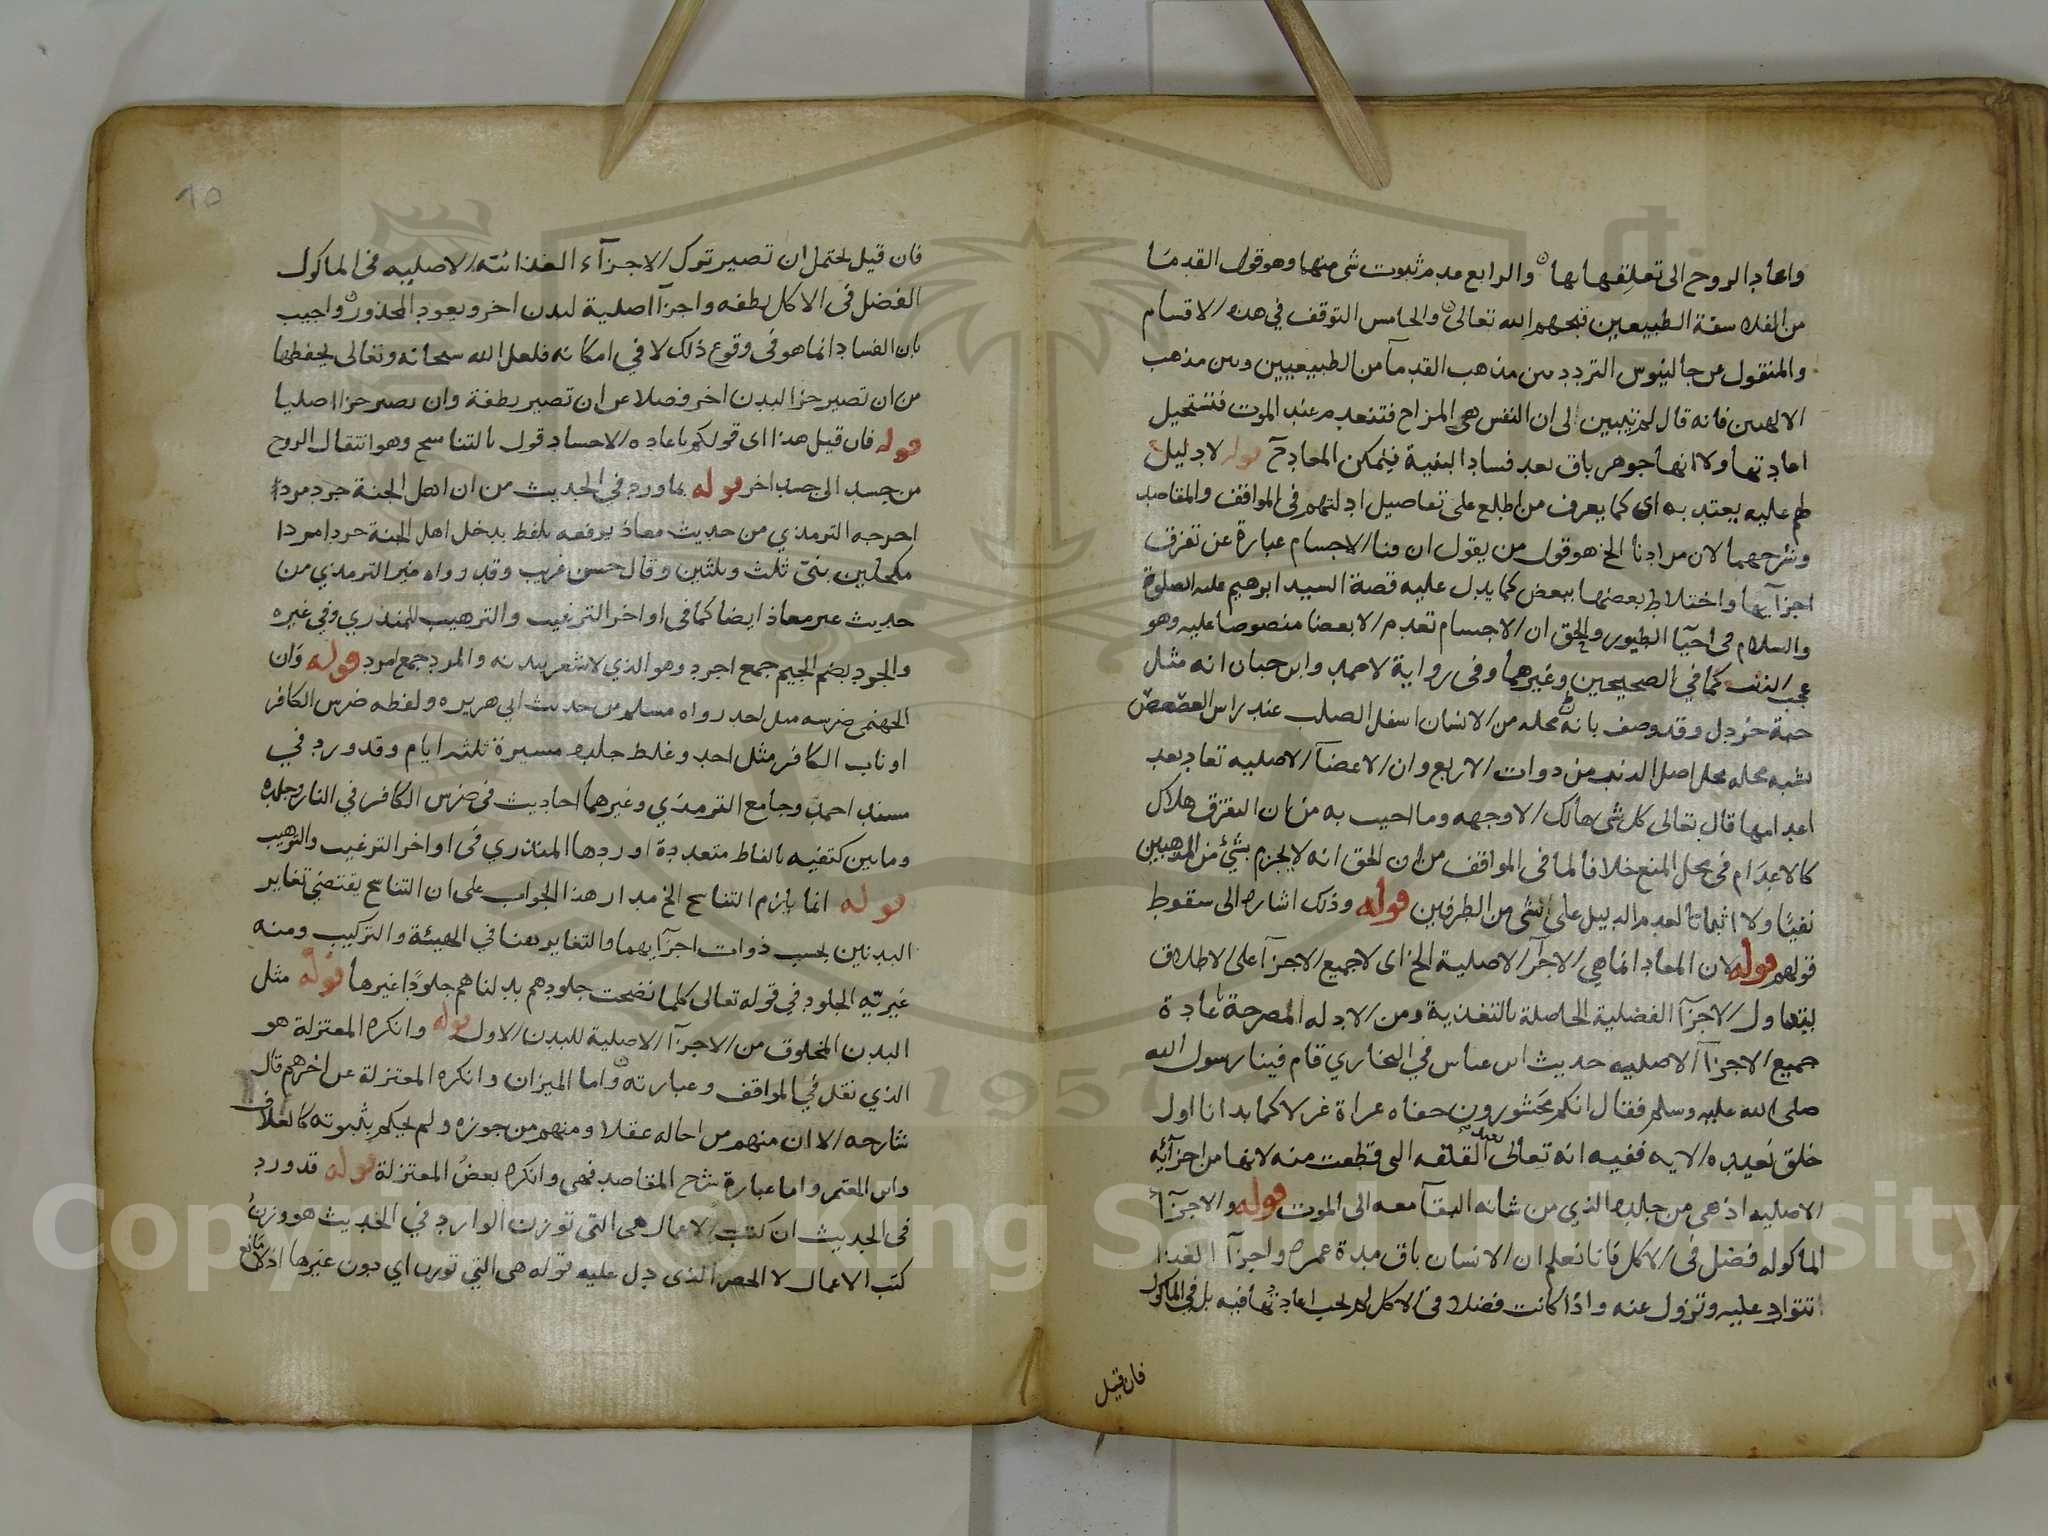 واعاد الروح الى تعلقها بها والرابع عدم ثبوت شى منها وهو قول القدما
من الفلاسفة الطبيعيين قبحهم الله تعالى والخامس التوقف في هذه الاقسام
والمنقول عن جالينوس التردد بين مذهب القدمآ من الطبيعيين وبين مذهب
الالهيين فانه قال لم يتبين لى ان النفس هى المزاح فتنعدم عند الموت فتستحيل
اعادتها ولا انها جوهر باق بعد فساد البنية فيمكن المعاد ح قوله لا دليل
لهم عليه يعتد به اى كما يعرف من اطلع على تفاصيل ادلتهم فى المواقف والمقاصد
وشرحهما لان مرادنا الخ هو قول من يقول ان فنا الاجسام عبارة عن تفرق
اجزآيها واختلاط بعضها ببعض كما يدل عليه قصة السيد ابرهيم عليه الصلوة
والسلام فى احيآ الطيور والحق ان الاجسام تعدم الا بعضا منصوصا عليه وهو
عجب الذنب كما في الصحيحين وغيرهما وفى رواية لاحمد وابن حبان انه مثل
حبة خردل وقد وصف بانه محله من الانسان اسفل الصلب عند راس العصعص
لشبه محله محل اصل الذنب من ذوات الاربع وان الاعضآ الاصليه تعاد بعد
اعدامها قال تعالى كل شى هالك الا وجهه وما اجيب به من ان التفرق هلاك
كالاعدام فى محل المنع خلافا لما فى المواقف من ان الحق انه لا يجزم بشئ من المذهبين
نفيا ولا اثباتا لعدم الدليل على شى من الطرفين قوله وذلك اشاره الى سقوط
قولهم قوله لان المعاد انما هى الاجزآ الاصلية الخ اى لا جميع الاجزآ على الاطلاق
ليتناول الاجزآ الفضلية الحاصلة بالتغذية ومن الادله المصرحة باعادة
جميع الاجزآ الاصليه حديث ابن عباس في البخاري قام فينا رسول الله
صلى الله عليه وسلم فقال انكم محشورون حفاه عراة غرلا كما بدانا اول
خلق نعيده الايه ففيه انه تعالى يعيد القلفه التى قطعت منه لانها من اجزآئه
الاصليه اذ هى من جلده الذي من شانه البقآ معه الى الموت قوله والاجزآ
الماكوله فضل فى الاكل فانا نعلم ان الانسان باق مدة عمره واجزآ الغذا
تتوارد عليه وتزول عنه واذا كانت فضلا فى الاكل لم يجب اعادتها فيه بل فى الماكول
فان قيل
10
فان قيل يحتمل ان تصير توك الاجزآء الغذائته الاصليه فى الماكول
الفضل فى الاكل نطفه واجزآ اصلية لبدن اخر ويعود المحذور واجيب
بان الفساد انما هو فى وقوع ذلك لا في امكانه فلعل الله سبحانه وتعالى يحفظها
من ان تصير جزا لبدن اخر فضلا عن ان تصير نطفة وان تصير جزا اصليا
قوله فان قيل هذا اى قولكم باعاده الاجساد قول بالتناسخ وهو انتقال الروح
من جسد الى جسد اخر قوله بما ورد في الحديث من ان اهل الجنة جرد مردا
اخرجه الترمذي من حديث معاذ يرفعه بلفظ يدخل اهل الجنة جردا مردا
مكحلين بنى ثلث وثلثين وقال حسن غريب وقد رواه غير الترمذي من
حديث غير معاذ ايضا كما فى اواخر الترغيب والترهيب للمنذري وفي غيره
والجرد بضم الجيم جمع اجرد وهو الذي لا شعر ببدنه والمرد جمع امرد قوله وان
الجهنمى ضرسه مثل احد رواه مسلم من حديث ابى هريره ولفظه ضرس الكافر
او ناب الكافر مثل احد وغلظ جلده مسيرة ثلثه ايام وقد ورد في
مسند احمد وجامع الترمذي وغيرهما احاديث فى ضرس الكافر في النار وجلده
وما بين كتفيه بالفاظ متعددة اوردها المنذري فى اواخر الترغيب والترهيب
قوله انما يلزم التناسخ الخ مدار هذا الجواب على ان التناسخ يقتضى تغاير
البدنين بحسب ذوات اجزآيهما والتغاير هنا في الهيئة والتركيب ومنه
غيرته الجلود في قوله تعالى كلما نضجت جلودهم بدلناهم جلودًا غيرها قوله مثل
البدن المخلوق من الاجزآ الاصلية للبدن الاول قوله وانكره المعتزلة هو
الذي نقل في المواقف وعبارته واما الميزان وانكره المعتزلة عن اخرهم قال
شارحه الا ان منهم من احاله عقلا ومنهم من جوزه ولم يحكم بثبوته كالعلاف
وابن المعتمر واما عبارة شرح المقاصد فهى وانكره بعض المعتزلة قوله قد ورد
فى الحديث ان كتب الاعمال هى التى توزن الوارد في الحديث هو وزن
كتب الاعمال لا الحصر الذى دل عليه قوله هى التي توزن اي دون غيرها اذ لا مانع